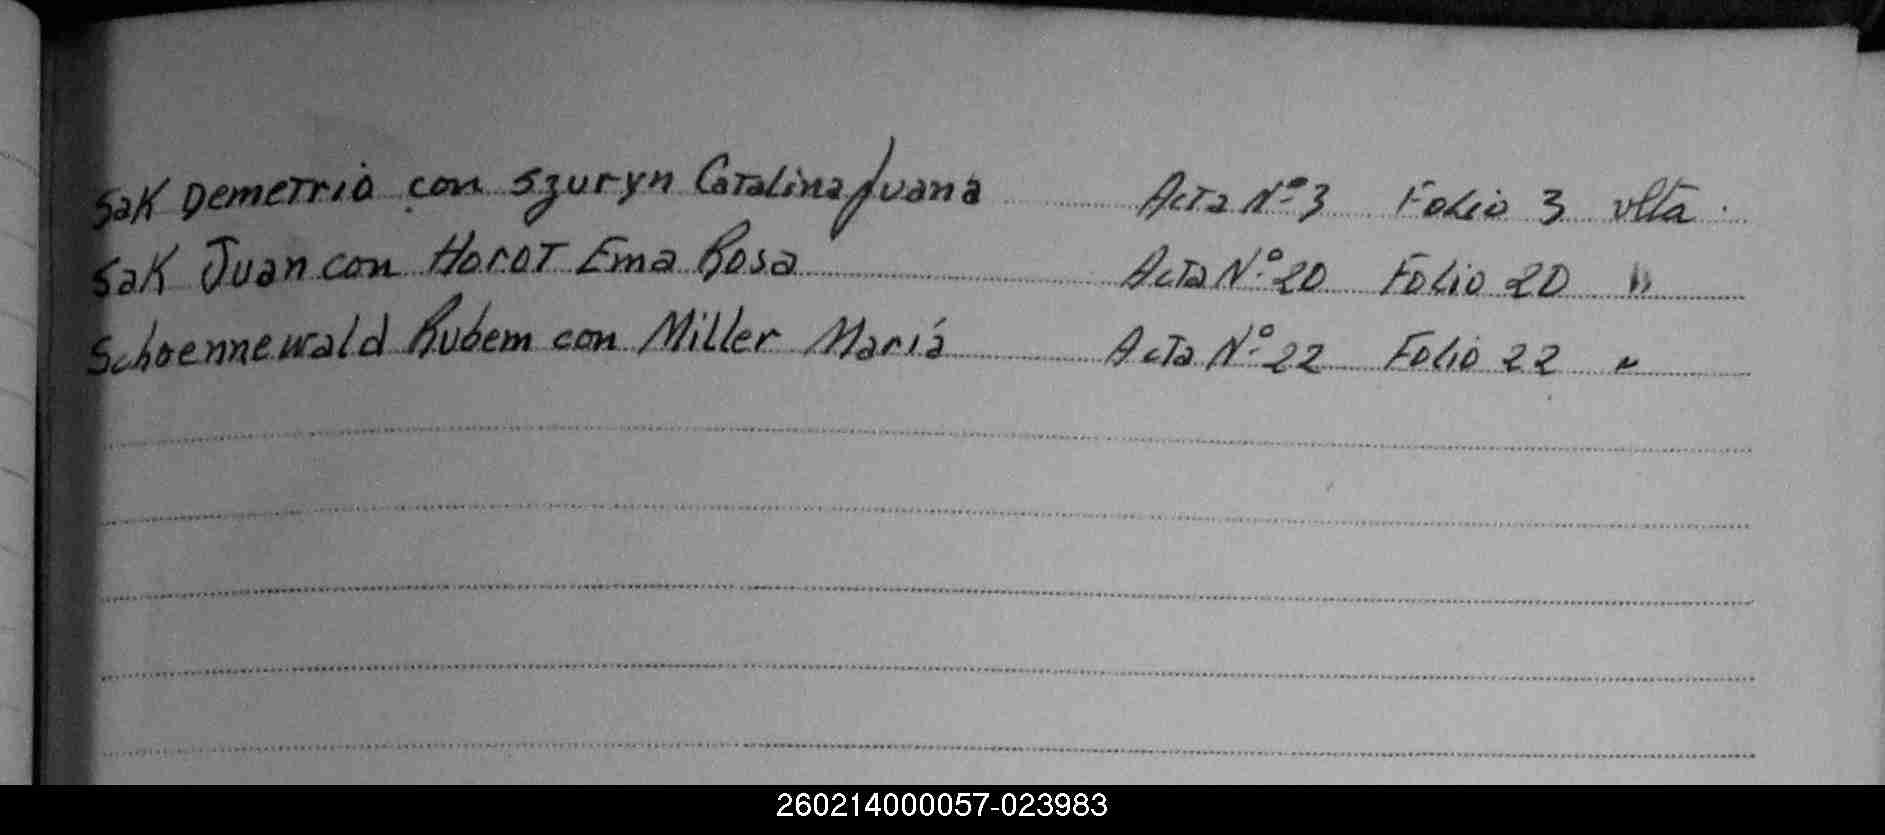 Sak Demetrio con Szuryn Catalina Juana Acta Nº 3 Folio 3 vlta.
Sak Juan con Horot Ema Rosa Acta Nº 20 Folio 20 "
Schoennewald Rubem con Miller Mariá Acta Nº 22 Folio 22 "
260214000057-023983